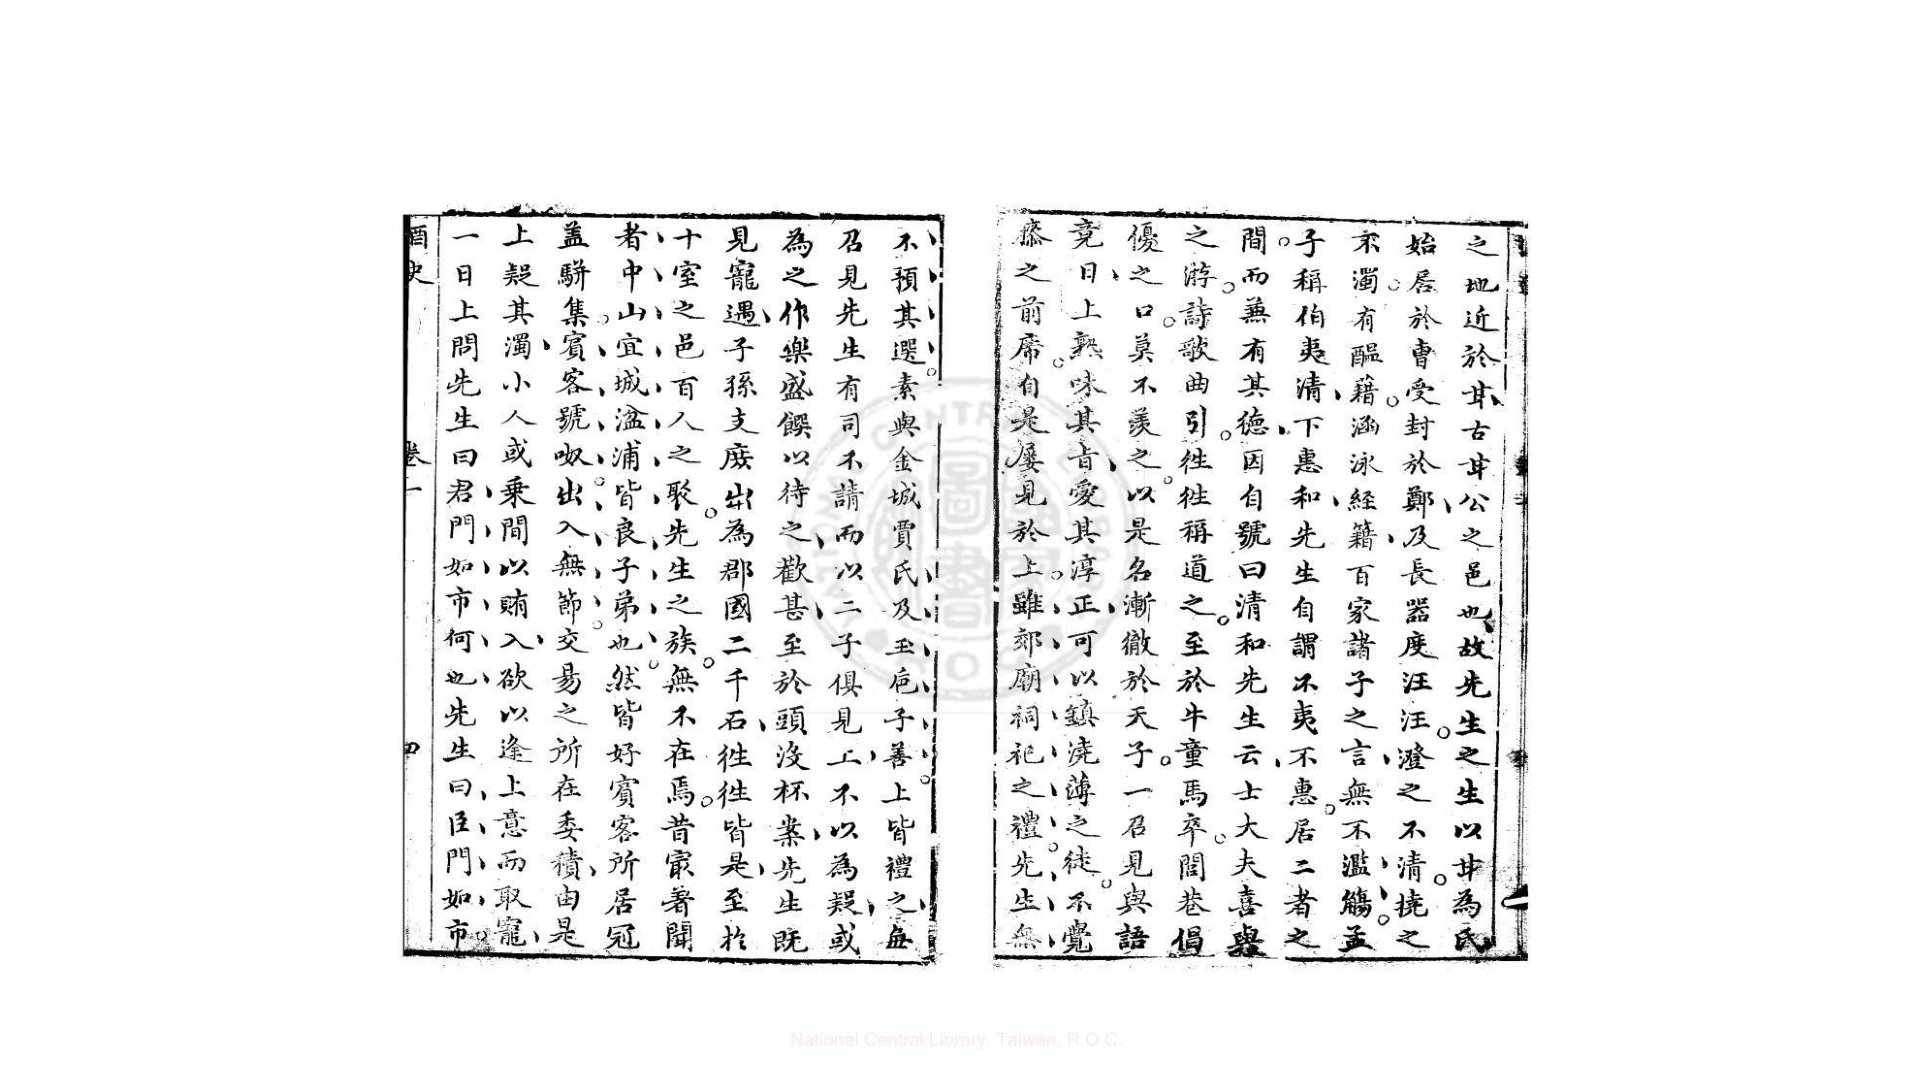 之地近於甘古甘公之邑也故先生之生以甘為氏
始居於曹受封於鄭及長器度汪汪澄之不清撓之
不濁有醖藉涵泳經籍百家諸子之言無不濫觴孟
子稱伯夷清下惠和先生自謂不夷不惠居二者之
間而兼有其德因自號曰清和先生云士大夫喜與
之游詩歌曲引徃徃稱道之至於牛童馬卒閭巷倡
優之口莫不羨之以是名漸徹於天子一召見與語
竟日上熟味其旨愛其淳正可以鎮澆薄之徒不覺
膝之前席自是屢見於上雖郊廟祠祀之禮先生無
不預其選素與金城賈氏及玉巵子善上皆禮之每
召見先生有司不請而以二子俱見上不以為疑或
為之作樂盛饌以待之歡甚至於頭沒杯案先生既
見寵遇子孫支庶出為郡國二千石徃徃皆是至於
十室之邑百人之聚先生之族無不在焉昔冣著聞
者中山宜城湓浦皆良子弟也然皆好賓客所居冠
盖駢集賓客號呶出入無節交易之所在委積由是
上疑其濁小人或乗間以賄入欲以逢上意而取寵
一日上問先生曰君門如市何也先生曰臣門如市
酒史
卷一
四
National Central Library, Taiwan, R.O.C.